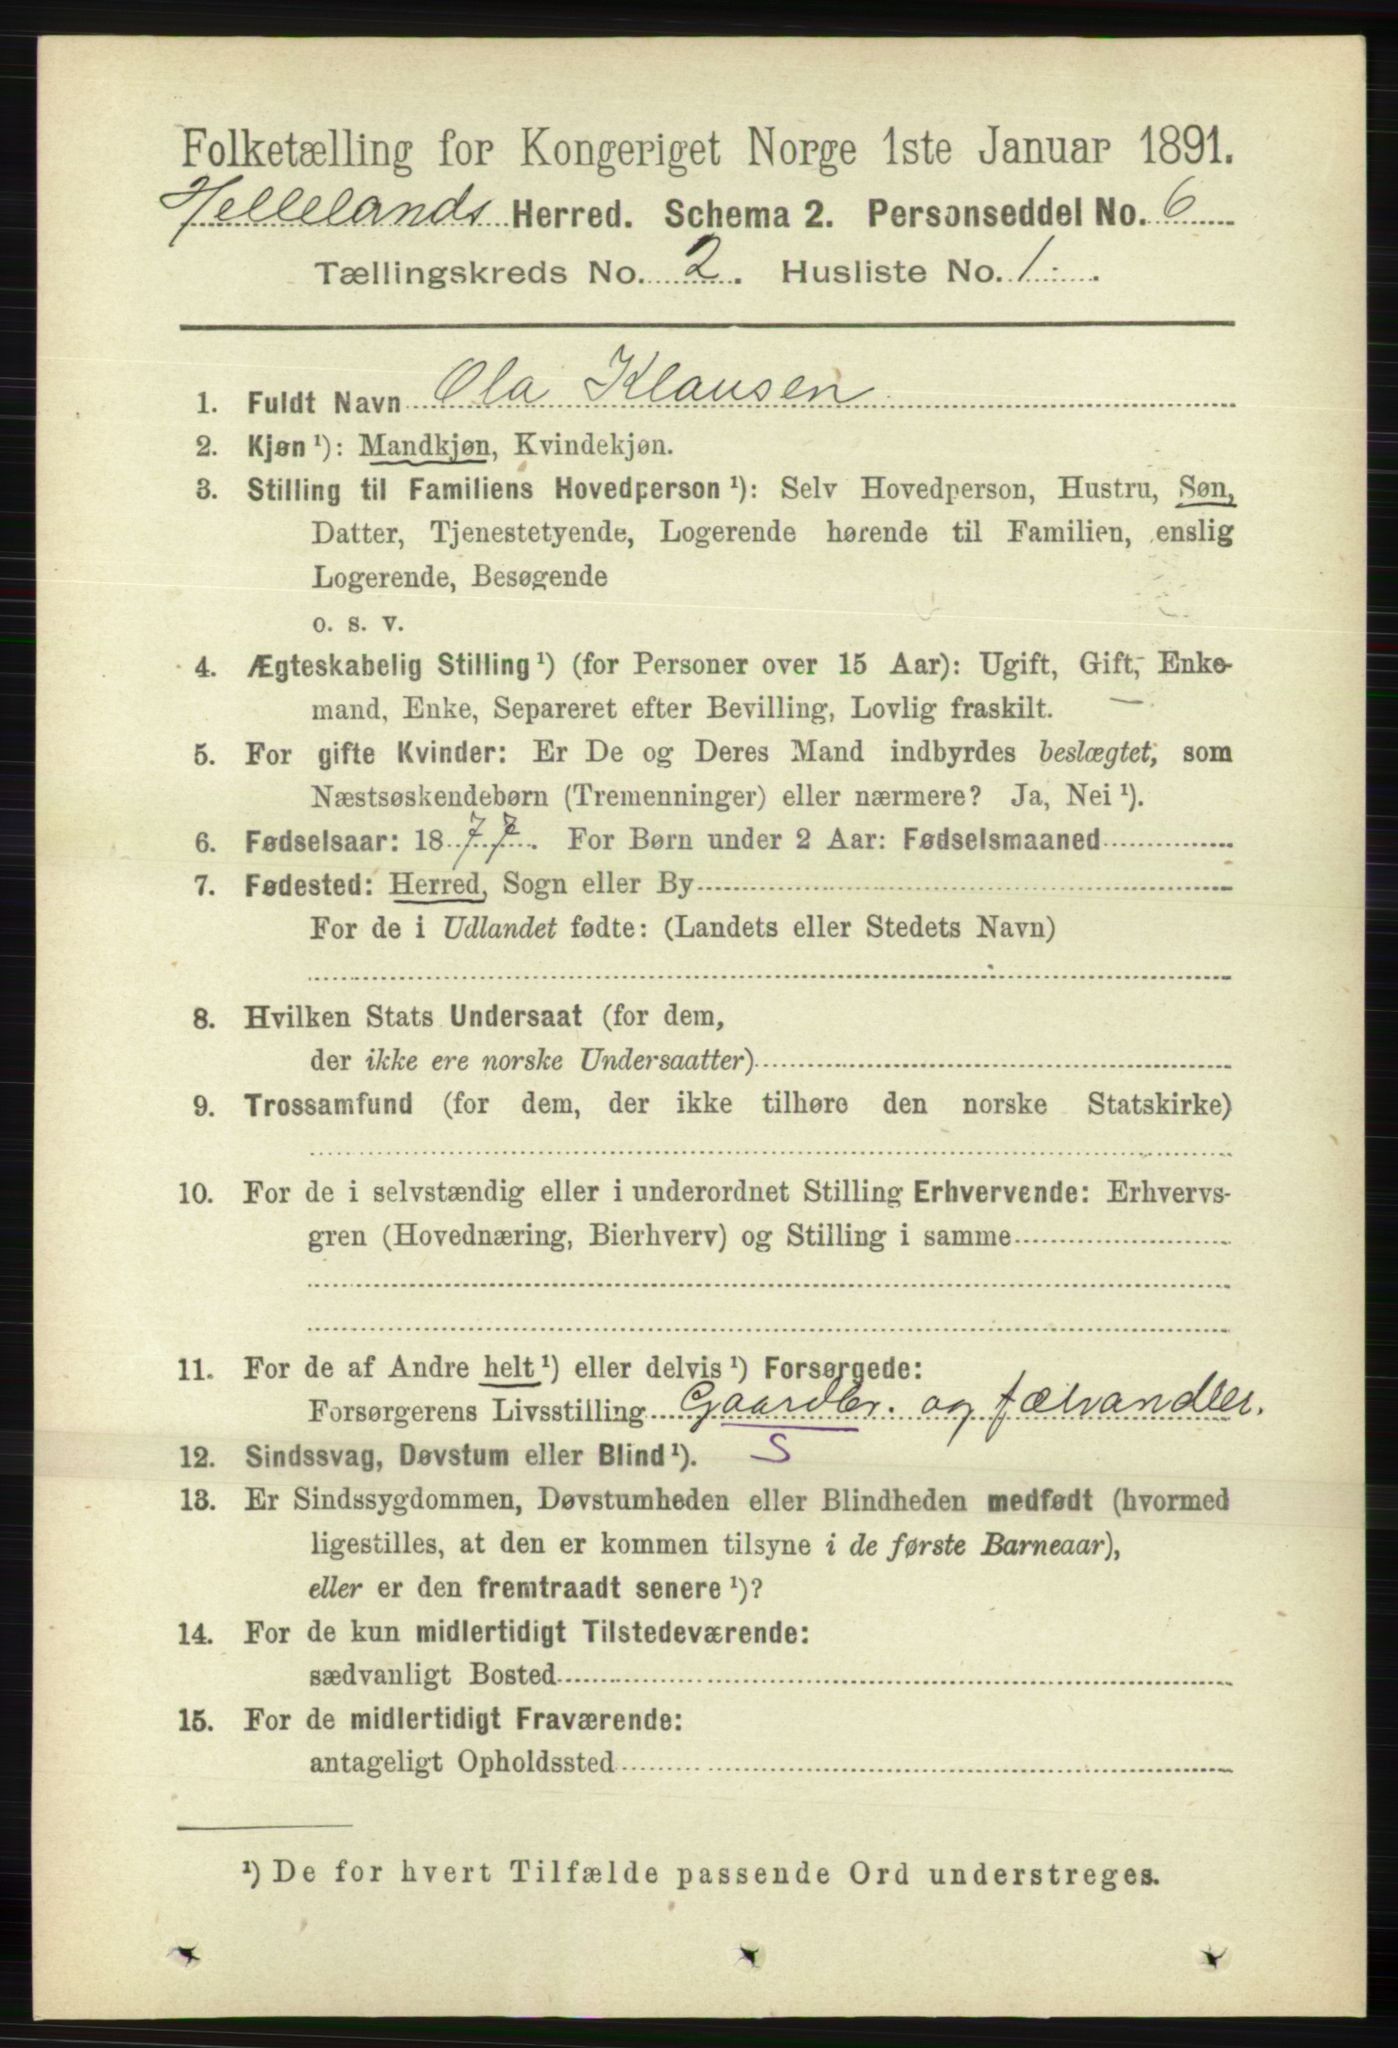 Folketælling for Kongeriget Norge 1ste Januar 1891.
Hellelands Herred. Schema 2. Personseddel No. 6
Tællingskreds No. 2. Husliste No. 1.
1. Fuldt Navn Ola Klausen
2. Kjøn¹): Mandkjøn, Kvindekjøn.
3. Stilling til Familiens Hovedperson¹): Selv Hovedperson, Hustru, Søn,
Datter, Tjenestetyende, Logerende hørende til Familien, enslig
Logerende, Besøgende
o. s. v.
4. Ægteskabelig Stilling¹) (for Personer over 15 Aar): Ugift, Gift, Enke-
mand, Enke, Separeret efter Bevilling, Lovlig fraskilt.
5. For gifte Kvinder: Er De og Deres Mand indbyrdes beslægtet, som
Næstsøskendebørn (Tremenninger) eller nærmere? Ja, Nei¹).
6. Fødselsaar: 1877. For Børn under 2 Aar: Fødselsmaaned
7. Fødested: Herred, Sogn eller By
For de i Udlandet fødte: (Landets eller Stedets Navn)
8. Hvilken Stats Undersaat (for dem,
der ikke ere norske Undersaatter)
9. Trossamfund (for dem, der ikke tilhøre den norske Statskirke)
10. For de i selvstændig eller i underordnet Stilling Erhvervende: Erhvervs-
gren (Hovednæring, Bierhverv) og Stilling i samme
11. For de af Andre helt¹) eller delvis¹) Forsørgede:
Forsørgerens Livsstilling Gaardbr. og fælhandler.
12. Sindssvag, Døvstum eller Blind¹). S
13. Er Sindssygdommen, Døvstumheden eller Blindheden medfødt (hvormed
ligestilles, at den er kommen tilsyne i de første Barneaar),
eller er den fremtraadt senere¹)?
14. For de kun midlertidigt Tilstedeværende:
sædvanligt Bosted
15. For de midlertidigt Fraværende:
antageligt Opholdssted
¹) De for hvert Tilfælde passende Ord understreges.